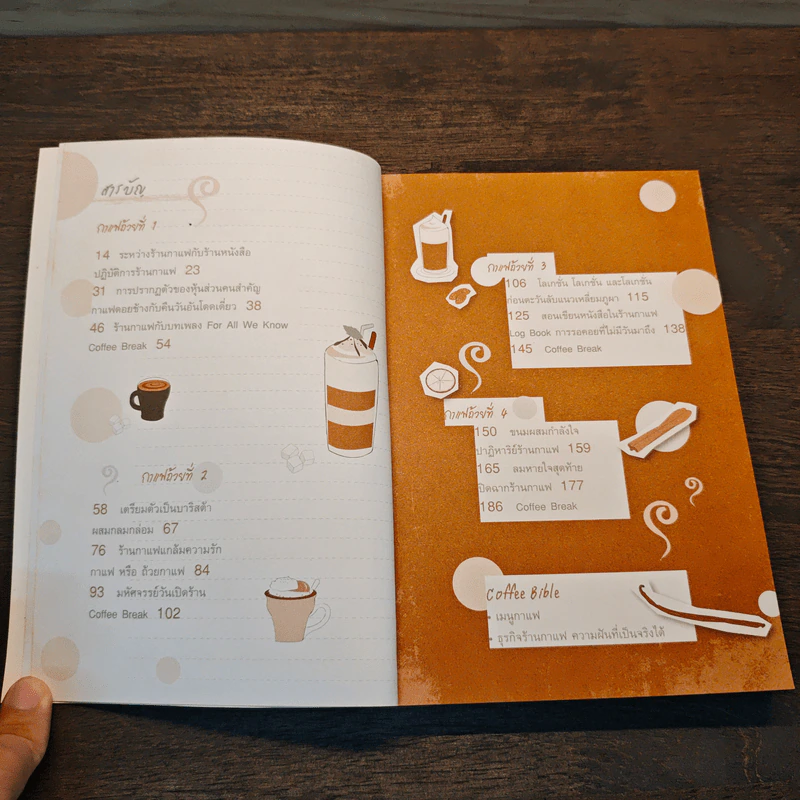 สารบัญ
กาแฟถ้วยที่ 1
14 ระหว่างร้านกาแฟกับร้านหนังสือ
ปฏิบัติการร้านกาแฟ 23
31 การปรากฏตัวของหุ้นส่วนคนสำคัญ
กาแฟดอยช้างกับคืนวันอันโดดเดี่ยว 38
46 ร้านกาแฟกับบทเพลง For All We Know
Coffee Break 54
กาแฟถ้วยที่ 2
58 เตรียมตัวเป็นบาริสต้า
ผสมกลมกล่อม 67
76 ร้านกาแฟแกล้มความรัก
กาแฟ หรือ ถ้วยกาแฟ 84
93 มหัศจรรย์วันเปิดร้าน
Coffee Break 102
กาแฟถ้วยที่ 3
106 โลเกชั่น โลเกชั่น และโลเกชั่น
ก่อนตะวันลับแนวเหลี่ยมภูผา 115
125 สอนเขียนหนังสือในร้านกาแฟ
Log Book การรอคอยที่ไม่มีวันมาถึง 138
145 Coffee Break
กาแฟถ้วยที่ 4
150 ขนมผสมกำลังใจ
ปาฏิหาริย์ร้านกาแฟ 159
165 ลมหายใจสุดท้าย
ปิดฉากร้านกาแฟ 177
186 Coffee Break
Coffee Bible
- เมนูกาแฟ
- ธุรกิจร้านกาแฟ ความฝันที่เป็นจริงได้